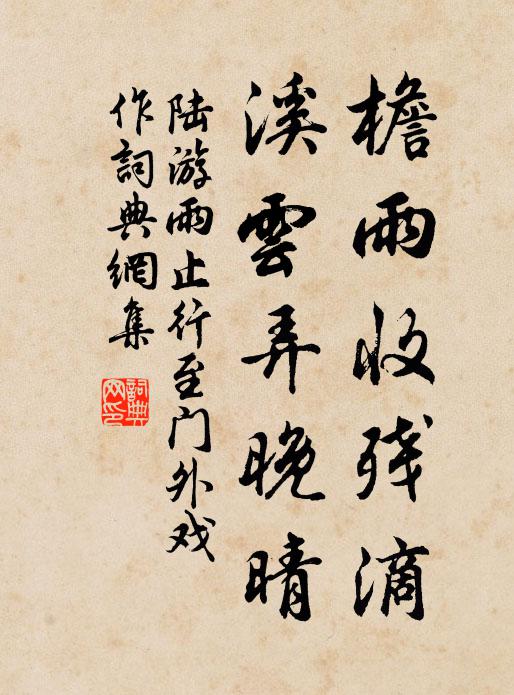 檐雨收残滴
溪雲弄晚晴
陆游雨止行至门外戏
作詞典網集
詞典
网印